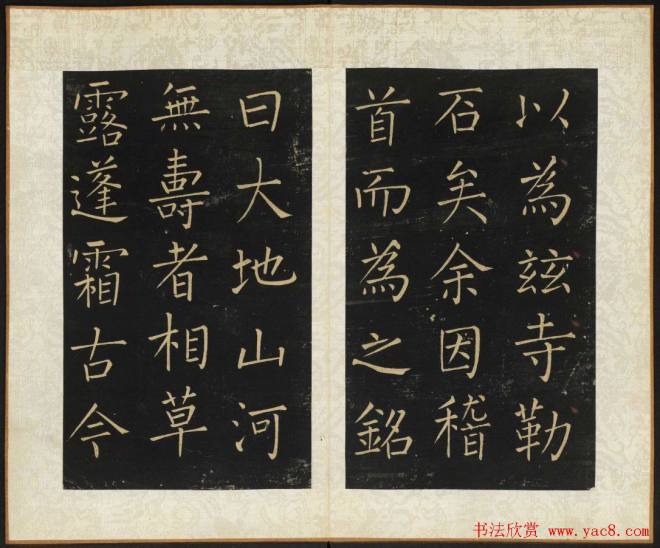 以為茲寺勒
石矣余因稽
首而為之銘
曰大地山河
無壽者相草
露蓬霜古今
书法欣赏 www.yac8.com